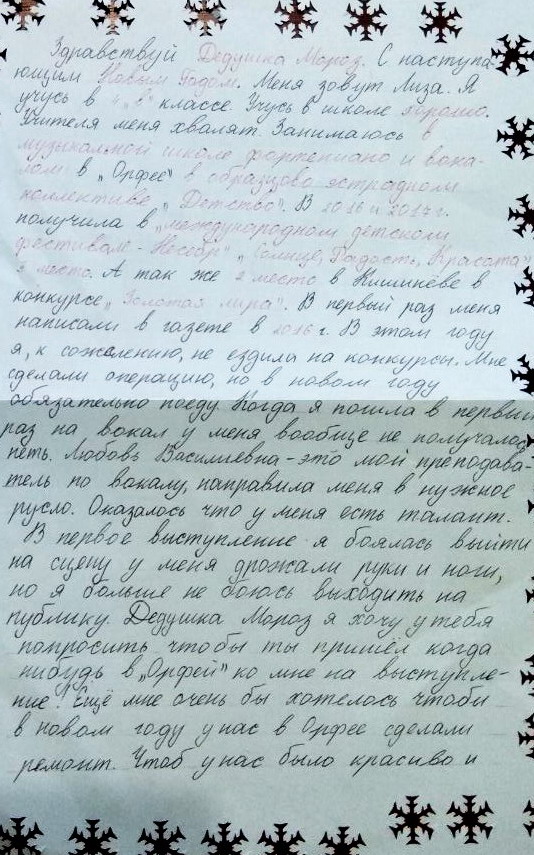 Здравствуй Дедушка Мороз. С наступа-
ющим Новым Годом. Меня зовут Лиза. Я
учусь в 4 „в" классе. Учусь в школе хорошо.
Учителя меня хвалят. Занимаюсь в
музыкальной школе фортепиано и вока-
лом в „Орфее" в образцово эстрадном
коллективе „Детство". В 2016 и 2017 г.
получила в „международном детском
фестивале - Несебр" „Солнце, Радость, Красота"
2 место. А так же 2 место в Кишинёве в
конкурсе „Золотая лира". В первый раз меня
написали в газете в 2016 г. В этом году
я, к сожелению, не ездила на конкурсы. Мне
сделали операцию, но в новом году
обязательно поеду. Когда я пошла в первый
раз на вокал у меня вообще не получалось
петь. Любовь Василиевна - это мой преподава-
тель по вокалу, направила меня в нужное
русло. Оказалось что у меня есть талант.
В первое выступление я боялась выйти
на сцену у меня дрожали руки и ноги,
но я больше не боюсь выходить на
публику. Дедушка Мороз я хочу у тебя
попросить чтобы ты пришёл когда
нибудь в „Орфей" ко мне на выступле-
ние! Ещё мне очень бы хотелось чтобы
в новом году у нас в Орфее сделали
ремонт. Чтоб у нас было красиво и